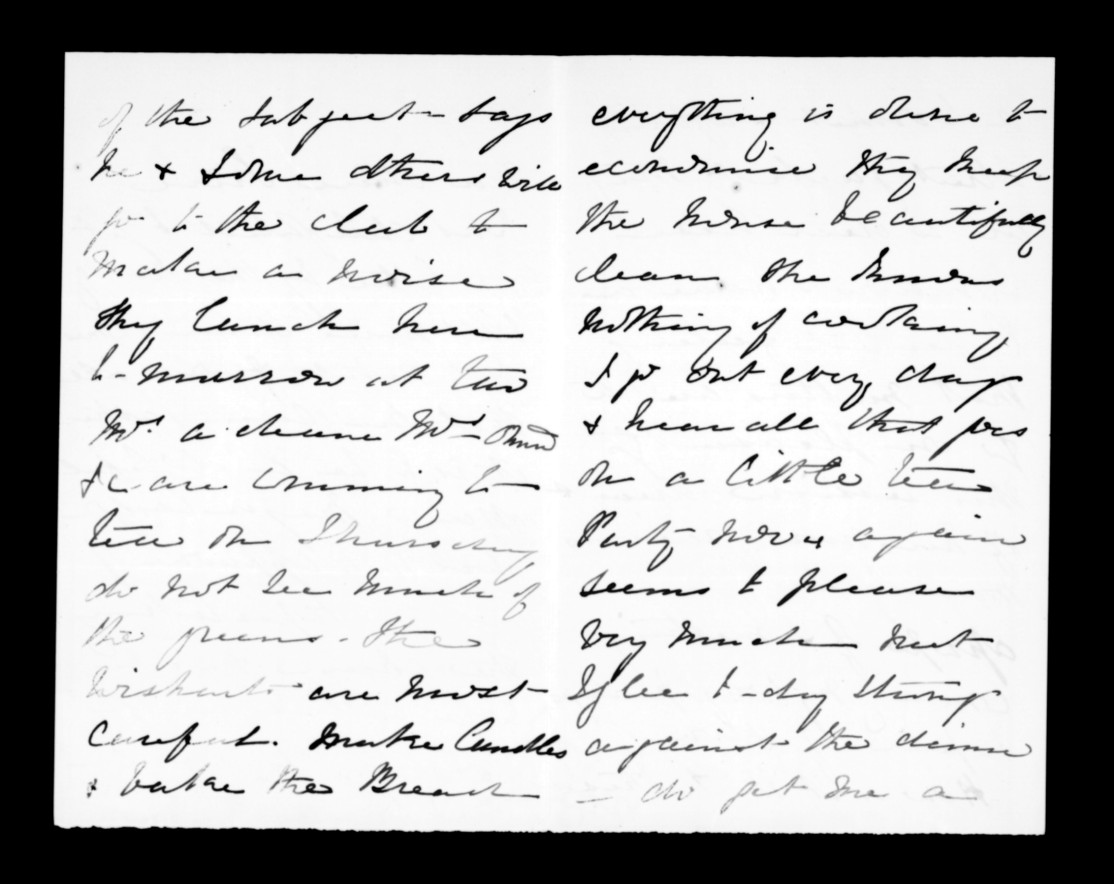 of the subject - says
he & some others will
go to the club to
make a noise
they lunch here
to-morrow at two
Mrs a'deane Mrs
&c are comming to
tea on Thursday
do not see much of
the greens - the
are most
careful. make Candles
& bake the Bread
everything is done to
economise they keep
the house beautifully
clean the
nothing of cooking
I go out every day
& hear all that goes
on a little tea
Party now & again
seems to please
very much
to-day strong
against the
- do get me a